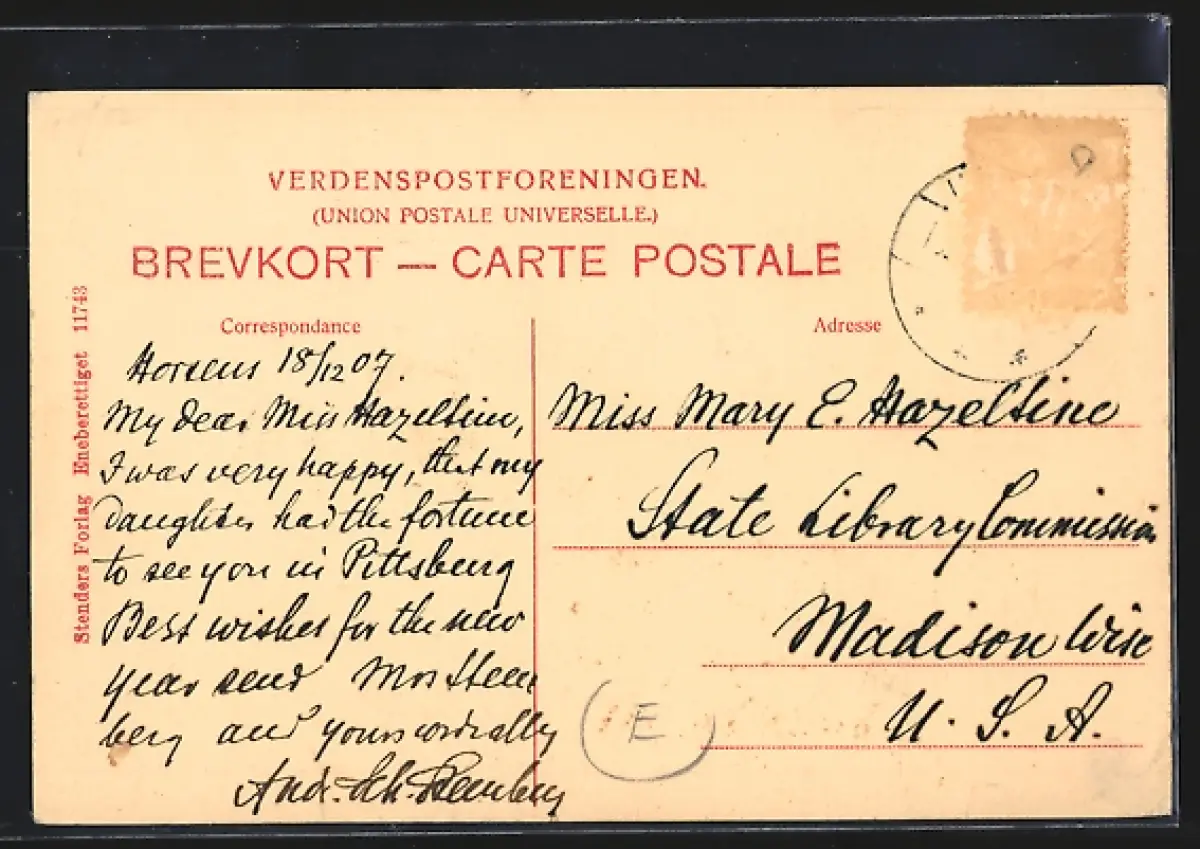 VERDENSPOSTFORENINGEN.
(UNION POSTALE UNIVERSELLE.)
BREVKORT — CARTE POSTALE
Stenders Forlag Eneberettiget 11743
Correspondance
Horsens 18/12 07.
My dear Miss Hazeltine,
I was very happy, that my
daughter had the fortune
to see you in Pittsburg
Best wishes for the new
year send Mrs Steen
berg and yours cordially
Andr. Sch. Steenberg
Adresse
Miss Mary E. Hazeltine
State Library Commission
Madison Wisc
U. S. A.
E
D